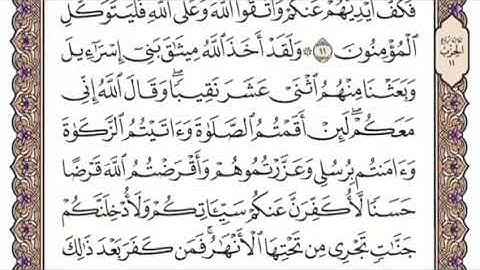 فَكَفَّ أَيْدِيَهُمْ عَنكُمْ وَٱتَّقُوا۟ ٱللَّهَ وَعَلَى ٱللَّهِ فَلْيَتَوَكَّلِ
ٱلْمُؤْمِنُونَ ١١ وَلَقَدْ أَخَذَ ٱللَّهُ مِيثَٰقَ بَنِىٓ إِسْرَٰٓءِيلَ
وَبَعَثْنَا مِنْهُمُ ٱثْنَىْ عَشَرَ نَقِيبًا ۖ وَقَالَ ٱللَّهُ إِنِّى
مَعَكُمْ ۖ لَئِنْ أَقَمْتُمُ ٱلصَّلَوٰةَ وَءَاتَيْتُمُ ٱلزَّكَوٰةَ
وَءَامَنتُم بِرُسُلِى وَعَزَّرْتُمُوهُمْ وَأَقْرَضْتُمُ ٱللَّهَ قَرْضًا
حَسَنًا لَّأُكَفِّرَنَّ عَنكُمْ سَيِّـَٔاتِكُمْ وَلَأُدْخِلَنَّكُمْ
جَنَّٰتٍ تَجْرِى مِن تَحْتِهَا ٱلْأَنْهَٰرُ ۚ فَمَن كَفَرَ بَعْدَ ذَٰلِكَ
الحزب
١١